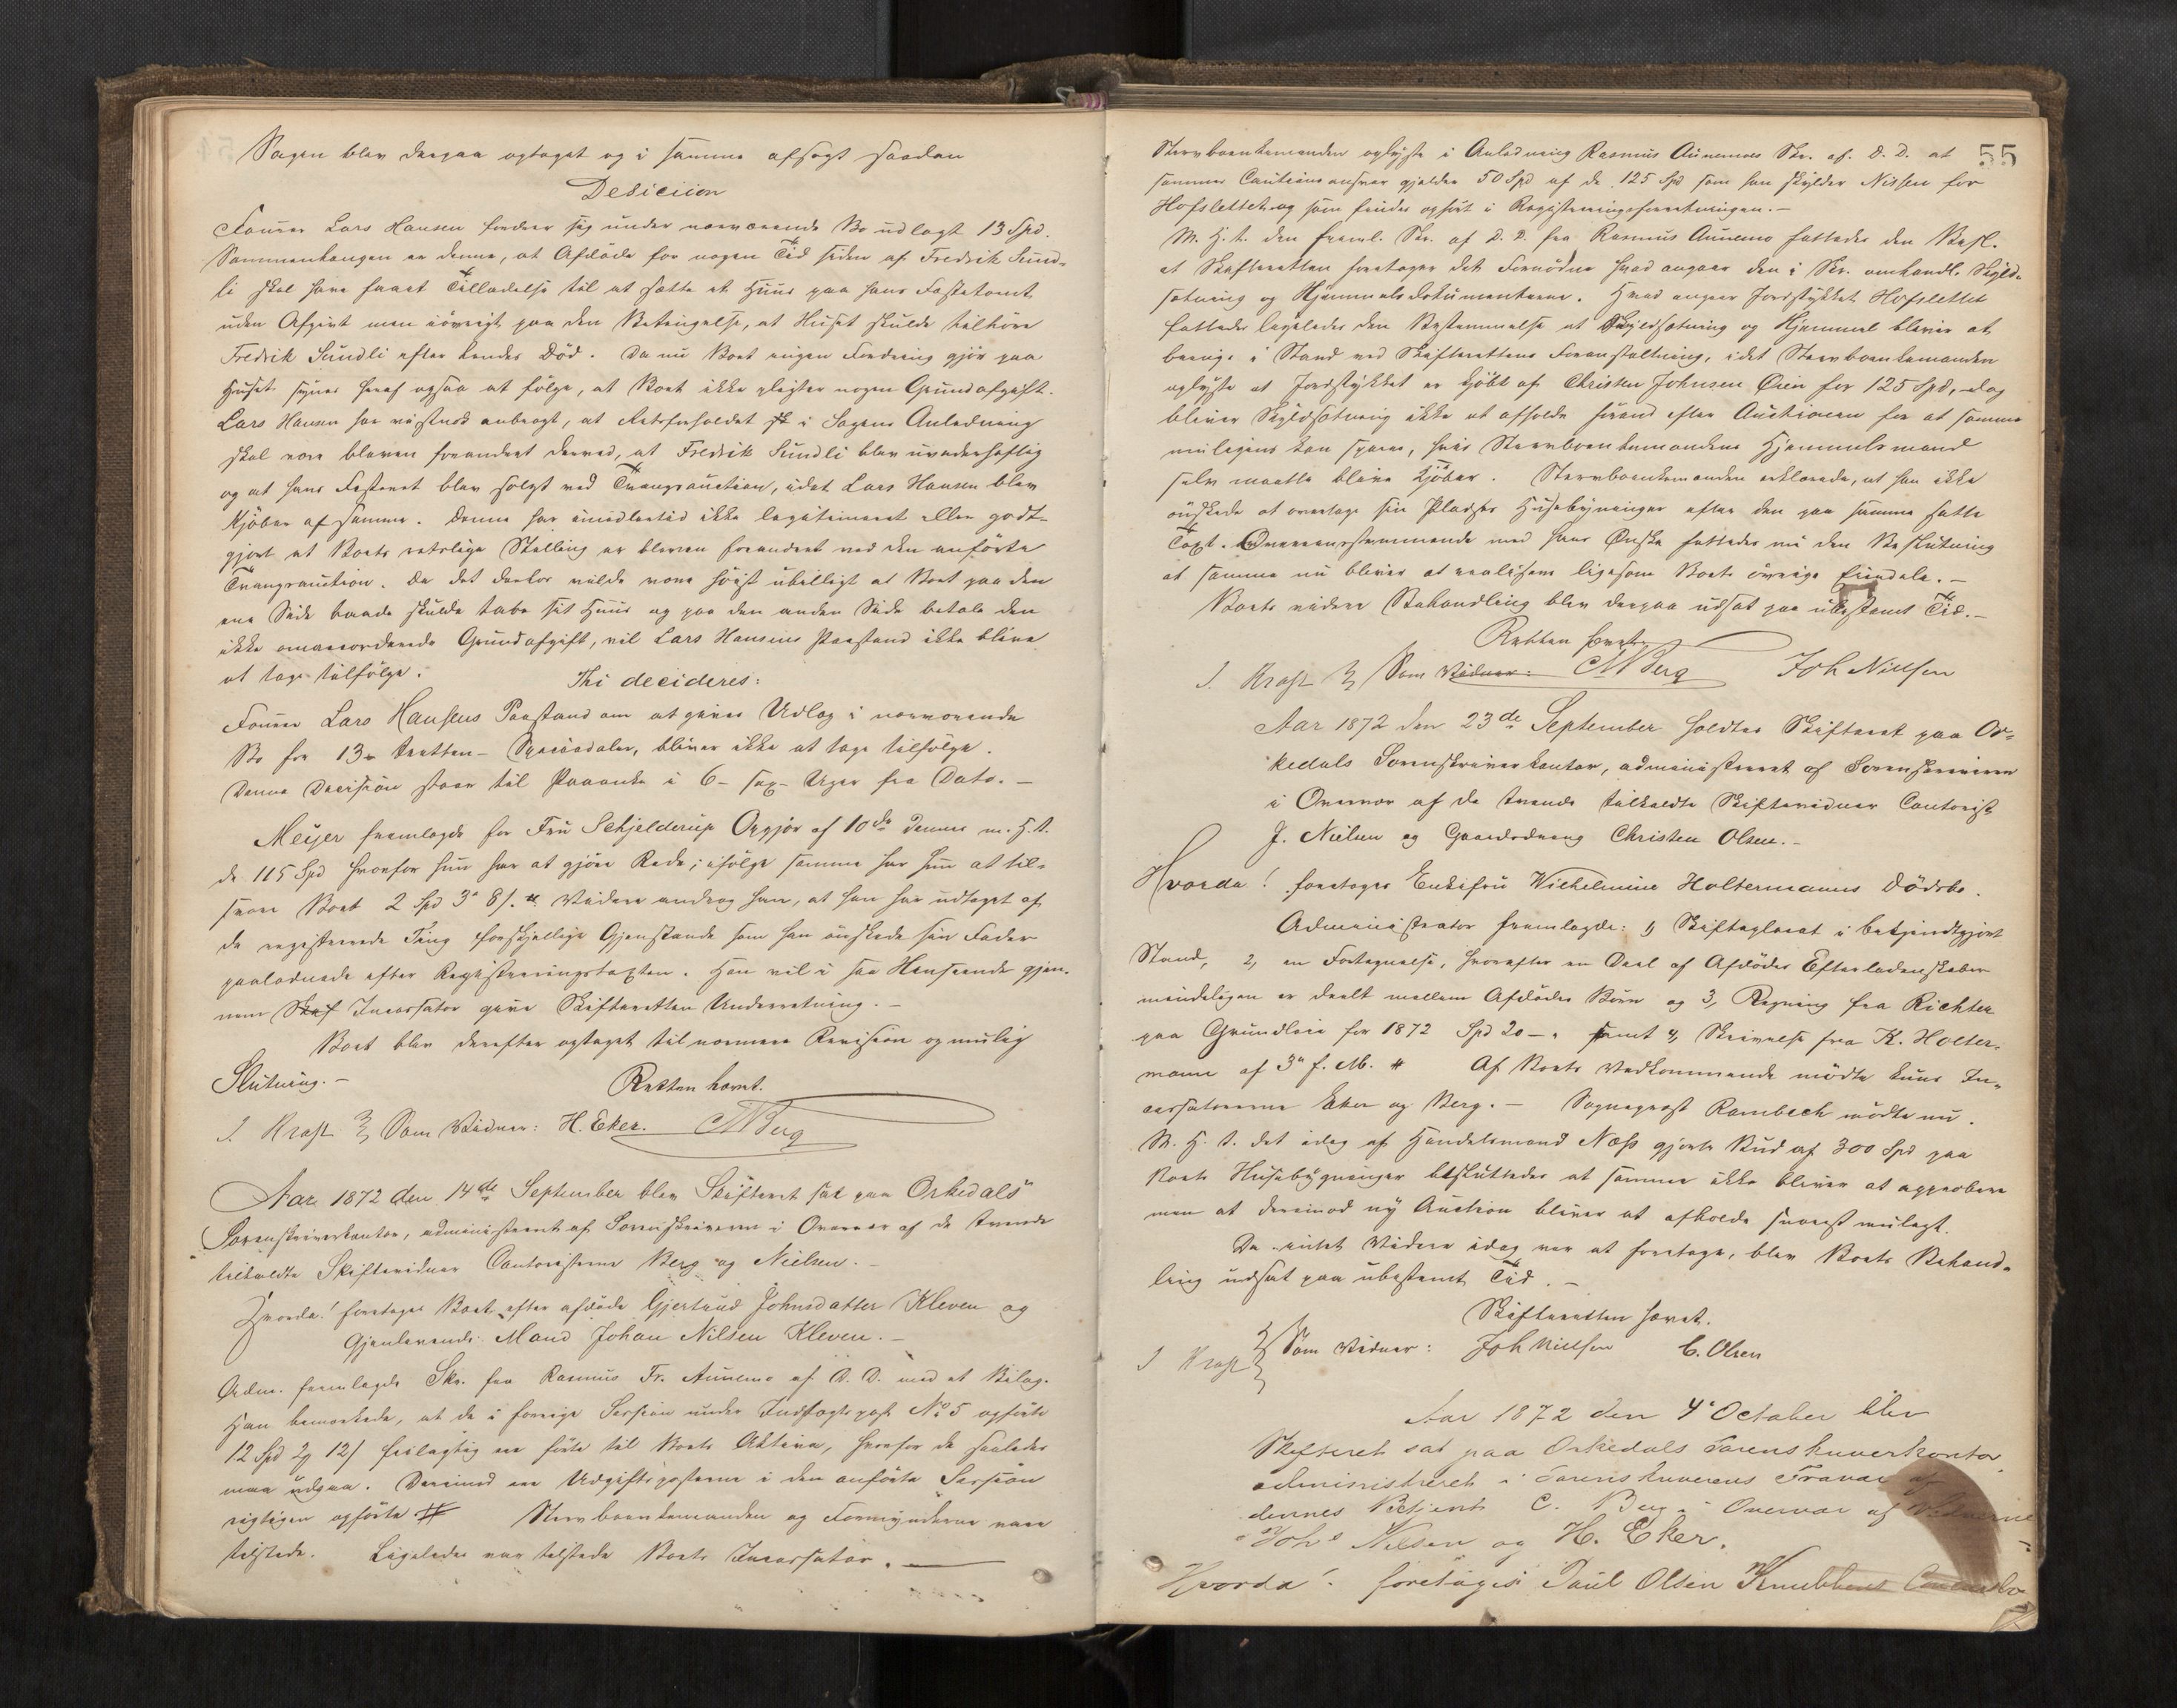 Sagen blev derpaa optaget og i samme afsagt saadan
Desiciion
Fourer Lars Hansen fordrer sig under nærværende Bo udlagt 13 Spd.
Sammenhængen er denne, at Afdøde for nogen Tid siden af Fredrik Sund-
li skal have faaet Tilladelse til at sætte et Huus paa hans Festetomt
uden Afgivt men iøvrigt paa den Betingelse, at Huset skulde tilhøre
Fredrik Sundli efter hendes Død. Da nu Boet ingen Fordring gjør paa
Huset synes heraf ogsaa at følge, at Boet ikke pligter nogen Grundafgift.
Lars Hansen har vistnok anbragt, at Retsforholdet i Sagens Anledning
skal være bleven forandret derved, at Fredrik Sundli blev uvederhæftig
og at hans Festeret blev solgt ved Tvangsauction, idet Lars Hansen blev
Kjøber af samme. Denne har imidlertid ikke legitimeret eller godt-
gjort at Boets retslige Stilling er bleven forandret ved den anførte
Tvangsauction. Da det derfor vilde være høist ubilligt at Boet paa den
ene Side baade skulde tabe sit Huus og paa den anden Side betale den
ikke omaccorderede Grundafgift, vil Lars Hansens Paastand ikke blive
at tage tilfølge.
Thi decideres:
Fourer Lars Hansens Paastand om at gives Udlæg i nærværende
Bo for 13 - tretten - Speciedaler, bliver ikke at tage tilfølge.
Denne Decision staar til Paaanke i 6 - sex - Uger fra Dato. -
Meyer fremlagde for Fru Schjelderup Opgjør af 10de dennes m. H. t.
de 115 Spd hvorfor hun har at gjøre Rede; ifølge samme har hun at til-
svare Boet 2 Spd 3 8/. # Videre androg han, at han har udtaget af
de registrerede Ting forskjellige Gjenstande som han ønskede sin Fader
paalodnede efter Registreringstaxten. Han vil i saa Henseende gjen-
nem Incassator give Skifteretten Underretning. -
Boet blev derefter optaget til nærmere Revision og mulig
Slutning. -
Retten hævet.
J. Kraft } Som Vidner: H. Eker. CMBerg
Aar 1872 den 14de September blev Skifteret sat paa Orkedals
Sorenskriverkontor, administreret af Sorenskriveren i Overvær af de tvende
tilkaldte Skiftevidner Cantoristerne Berg og Nielsen. -
Hvorda! foretages Boet efter afdøde Gjertrud Johnsdatter Kleven og
Gjenlevende Mand Johan Nilsen Kleven. -
Adm. fremlagde Skr. fra Rasmus Fr. Aunemo af D. D. med et Bilag.
Han bemærkede, at de i forrige Session under Indtægtspost No 5 opførte
12 Spd 2 12/ feilagtig ere førte til Boets Aktiva, hvorfor de saaledes
maa udgaa. Derimod ere Udgiftsposterne i den anførte Session
rigtigen opførte # Stervboenkemanden og Formynderne vare
tilstede. Ligeledes var tilstede Boets Incassator. -
55
Stervboenkemanden oplyste i Anledning Rasmus Aunemos Skr. af D. D. at
sammes Cautionsansvar gjelder 50 Spd af de 125 Spd som han skylder Nissen for
Hofslettet og som findes opført i Registreringsforretningen. -
M. H. t. den freml. Skr. af D. D. fra Rasmus Aunemo fattedes den Besl.
at Skifteretten foretager det Fornødne hvad angaar den i Skr. omhandl. Skyld-
sætning og Hjemmelsdokumenterne. Hvad angaar Jordstykket Hofslettet
fattedes ligeledes den Bestemmelse at Skyldsætning og Hjemmel bliver at
bringe i Stand ved Skifterettens Foranstaltning, idet Stervboenkemanden
oplyste at Jordstykket er kjøbt af Christen Johnsen Øien for 125 Spd, dog
bliver Skyldsætning ikke at afholde førend efter Auctionen for at samme
muligens kan spares, hvis Stervboenkemandens Hjemmelsmand
selv maatte blive Kjøber. Stervboenkemanden erklærede, at han ikke
ønskede at overtage sin Pladses Husebygninger efter den paa samme satte
Taxt. Overeensstemmende med hans Ønske fattedes nu den Beslutning
at samme nu bliver at realisere ligesom Boets øvrige Eiendele. -
Boets videre Behandling blev derpaa udsat paa ubestemt Tid. -
Retten hævet.
J. Kraft } Som Vidner: CMBerg Joh Nielsen
Aar 1872 den 23de September holdtes Skifteret paa Or-
kedals Sorenskriverkontor, administreret af Sorenskriveren
i Overvær af de tvende tilkaldte Skiftevidner Cantorist
J. Nielsen og Gaardsdreng Christen Olsen. -
Hvorda! foretages Enkefru Wilhelmine Holtermanns Dødsbo.
Administrator fremlagde: 1, Skifteplacat i bekjendtgjort
Stand, 2, en Fortegnelse, hvorefter en Deel af Afdødes Efterladenskaber
mindeligen er deelt mellem Afdødes Børn og 3, Regning fra Richter
paa Grundleie for 1872 Spd 20 - " samt 4, Skrivelse fra K. Holter-
mann af 3' f. M. # Af Boets Vedkommende mødte kuns In-
cassatorerne Eker og Berg. - Sogneprest Rambech mødte nu.
M. H. t. det idag af Handelsmand Næss gjorte Bud af 300 Spd paa
Boets Husebygninger besluttedes at samme ikke bliver at approbere
men at derimod ny Auction bliver at afholde snarest muligt.
Da intet Videre idag var at foretage, blev Boets Behand-
ling udsat paa ubestemt Tid. -
Skifteretten hævet.
J Kraft } Som Vidner: Joh Nielsen C. Olsen
Aar 1872 den 4' October blev
Skifteret sat paa Orkedals Sorenskriverkontor
administreret i Sorenskriverens Fravær af
dennes Betjent C. Berg i Overvær af Vidnerne
Johs Nilsen og H. Eker.
Hvorda! foretages Paul Olsen Knubbens Concursbo